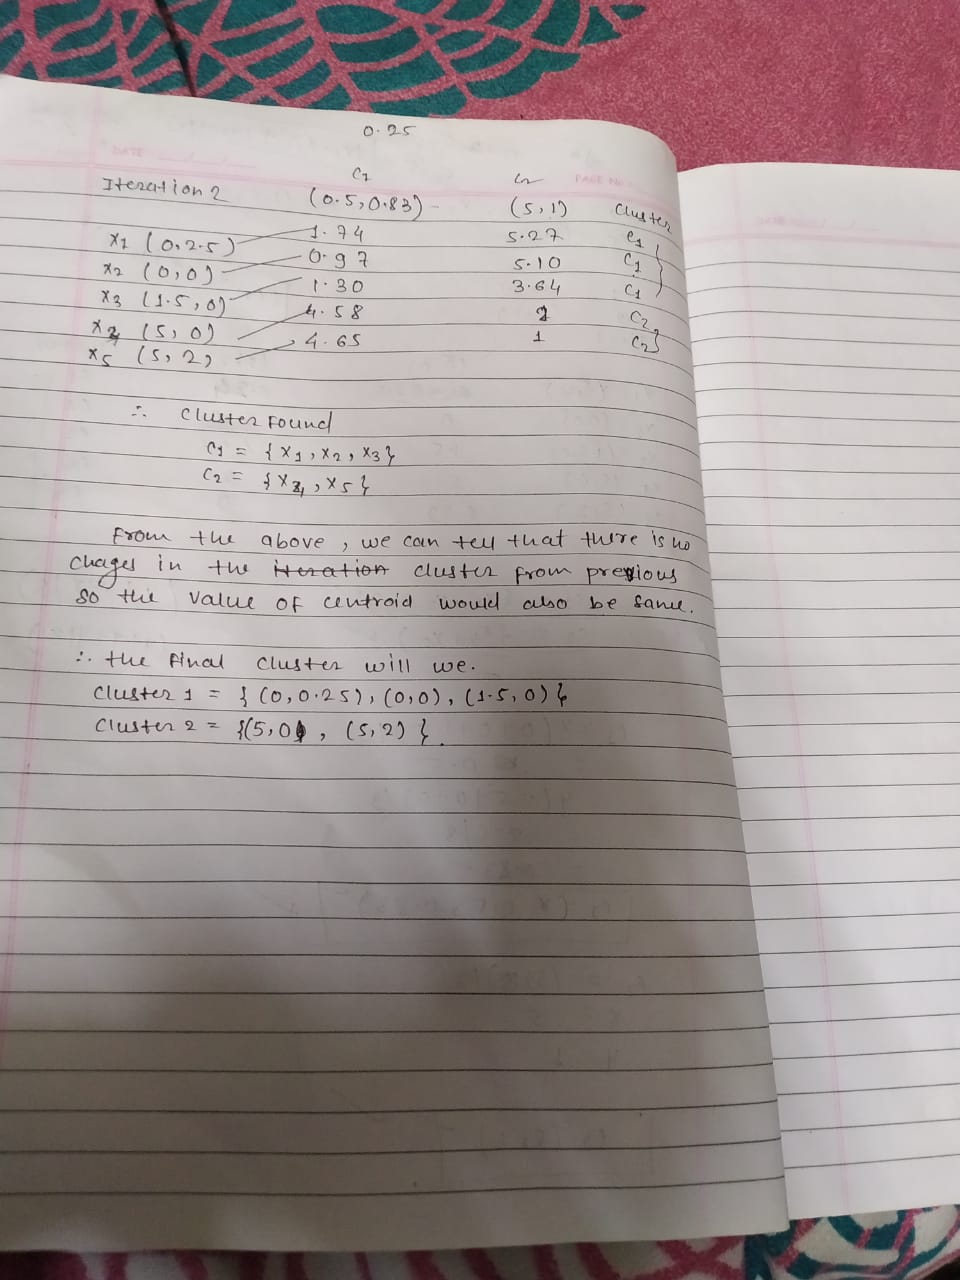 0.25
DATE
C1 C2 PAGE No
Iteration 2 (0.5,0.83) (5,1) Cluster
x1 (0,2.5) 1.74 5.27 C1
x2 (0,0) 0.97 5.10 C1
x3 (1.5,0) 1.30 3.64 C1
x4 (5,0) 4.58 1 C2
x5 (5,2) 4.65 1 C2
∴ Cluster Found
C1 = {x1, x2, x3}
C2 = {x4, x5}
From the above, we can tell that there is no
chages in the iteration cluster from previous
so the value of centroid would also be same.
∴ the final cluster will we.
Cluster 1 = {(0,0.25), (0,0), (1.5,0)}
Cluster 2 = {(5,0), (5,2)}.